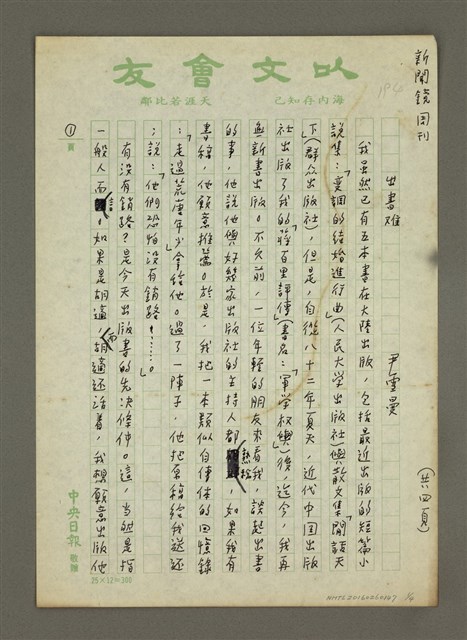 以文會友
海內存知己
天涯若比鄰
新聞鏡周刊
1P4
出書难
尹雪曼
(共四頁)
我虽然已有五本書在大陸出版，包括最近出版的短篇小
説集：「变調的結婚進行曲」(人民大学出版社)與散文集「閒話天
下」(群众出版社)，但是，自從八十二年夏天，近代中国出版
社出版了我的「蔣百里評傳」(書名：「軍学权輿」)後，迄今，我再
無新書出版。不久前，一位年輕的朋友來看我，談起出書
的事，他說他與好幾家出版社的主持人都熟稔，如果我有
書稿，他願意推薦。於是，我把一本類似自傳体的回憶錄
：「走過荒唐年少」拿給他。過了一陣子，他把原稿給我送还
；說：「他們恐怕沒有銷路！……。」
有没有銷路？是今天出版書的先决條件。這，当然是指
一般人而言。如果是胡適，而胡適还活着，我想願意出版他
①頁
中央日報 敬贈
25×12=300
1/4